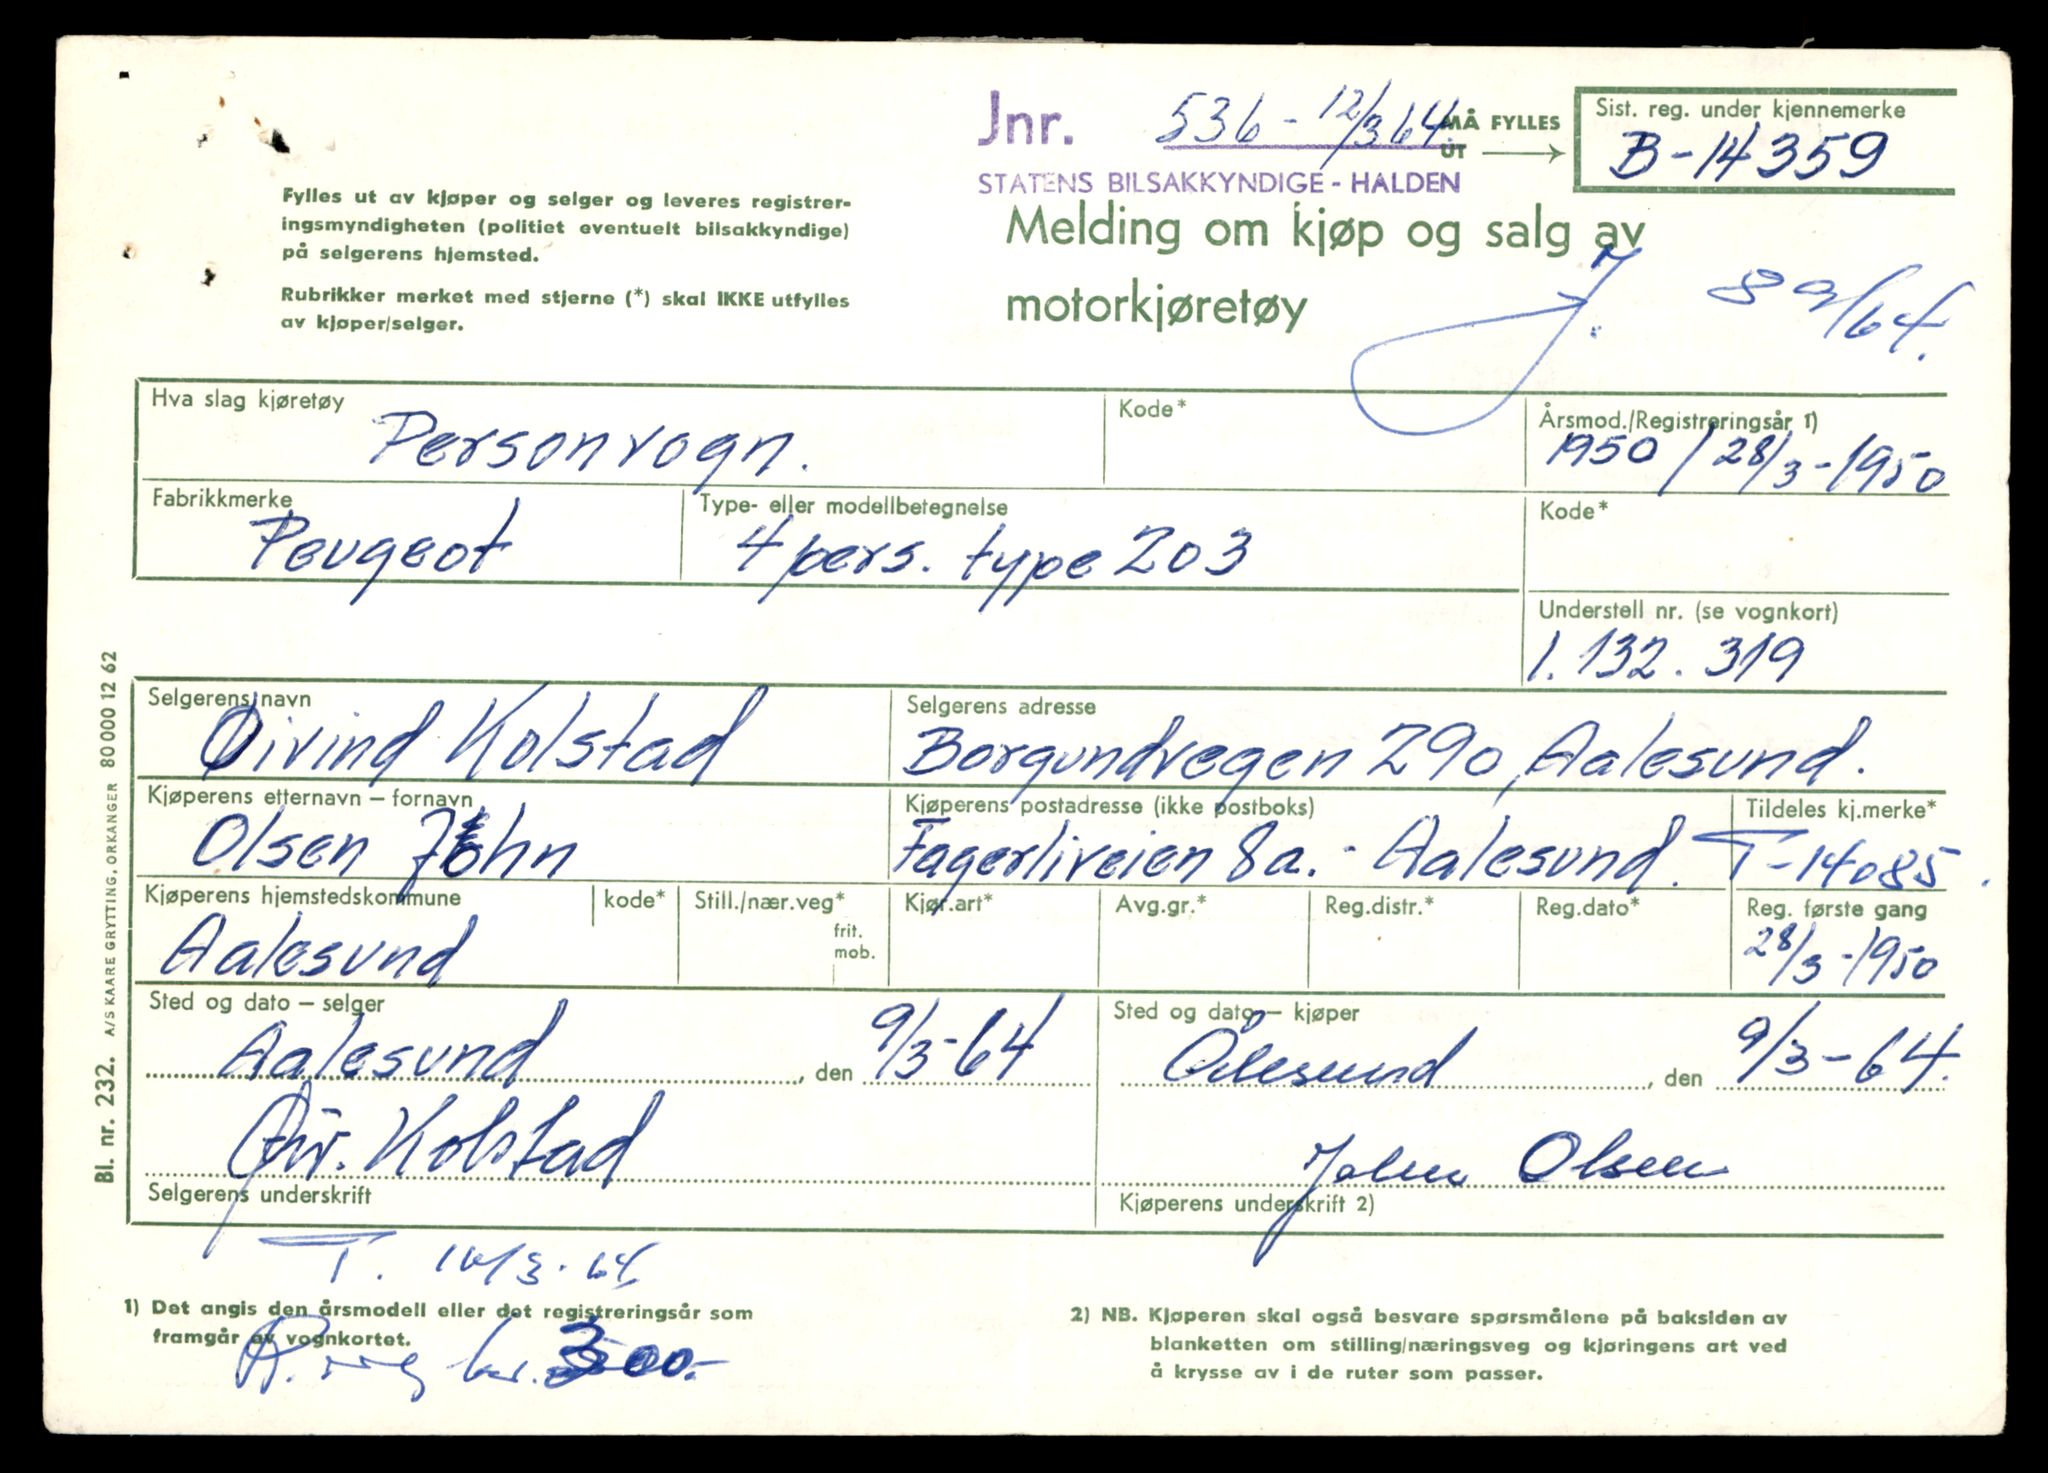 Jnr. 536 - 12/3 64
STATENS BILSAKKYNDIGE - HALDEN
MÅ FYLLES UT
Sist. reg. under kjennemerke
B-14359
Fylles ut av kjøper og selger og leveres registrer-
ingsmyndigheten (politiet eventuelt bilsakkyndige)
på selgerens hjemsted.
Rubrikker merket med stjerne (*) skal IKKE utfylles
av kjøper/selger.
Melding om kjøp og salg av
motorkjøretøy
J. 89/64.
Hva slag kjøretøy
Personvogn.
Kode*
Årsmod./Registreringsår 1)
1950 / 28/3-1950
Fabrikkmerke
Peugeot
Type- eller modellbetegnelse
4 pers. type 203
Kode*
Understell nr. (se vognkort)
1.132.319
Selgerens navn
Øivind Kolstad
Selgerens adresse
Borgundvegen 290, Aalesund.
Kjøperens etternavn – fornavn
Olsen John
Kjøperens postadresse (ikke postboks)
Fagerliveien 8a. - Aalesund.
Tildeles kj.merke*
T-14085.
Kjøperens hjemstedskommune
Aalesund
kode*
Still./nær.veg*
frit.
mob.
Kjør.art*
Avg.gr.*
Reg.distr.*
Reg.dato*
Reg. første gang
28/3-1950
Sted og dato – selger
Aalesund, den 9/3-64
Sted og dato – kjøper
Ålesund, den 9/3-64.
Øiv. Kolstad
Selgerens underskrift
John Olsen
Kjøperens underskrift 2)
T. 14/3-64
1) Det angis den årsmodell eller det registreringsår som
framgår av vognkortet.
kr. 300.-
2) NB. Kjøperen skal også besvare spørsmålene på baksiden av
blanketten om stilling/næringsveg og kjøringens art ved
å krysse av i de ruter som passer.
Bl. nr. 232. A/S KAARE GRYTTING, ORKANGER 80 000 12 62